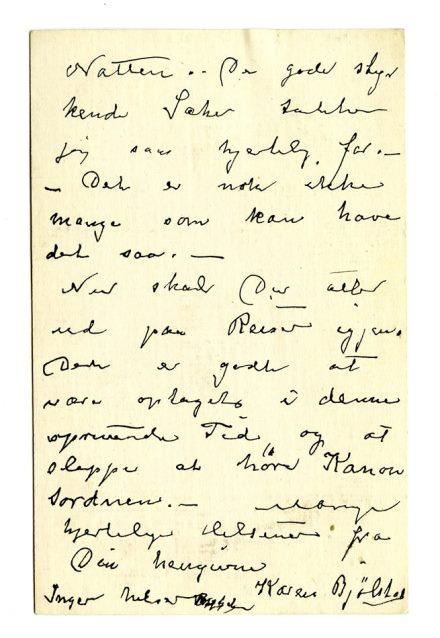 Natten. . De gode styr
kende Saker takker
jeg saa hjertelig for. —
— Det er nok ikke
mange som kan have
det saa. —
Nu skal Du atter
ud paa Reiser igjen.
Det er godt at
være optaget i denne
oprivende Tid, og at
slippe at höre Kanon
tordnen. — Mange
hjertelige Hilsener fra
Din hengivne
Karen Bjølstad
Inger hilser